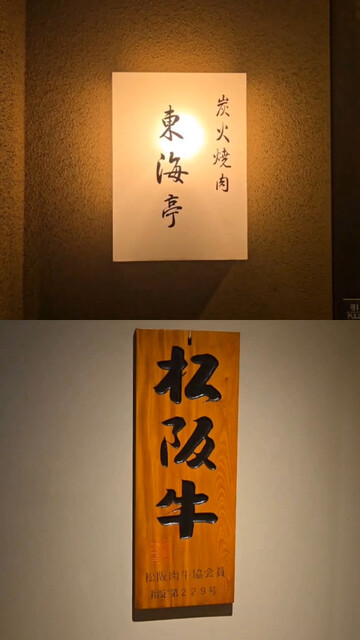 炭火焼肉
東海亭
松阪牛
松阪肉牛協会員
指定第229号